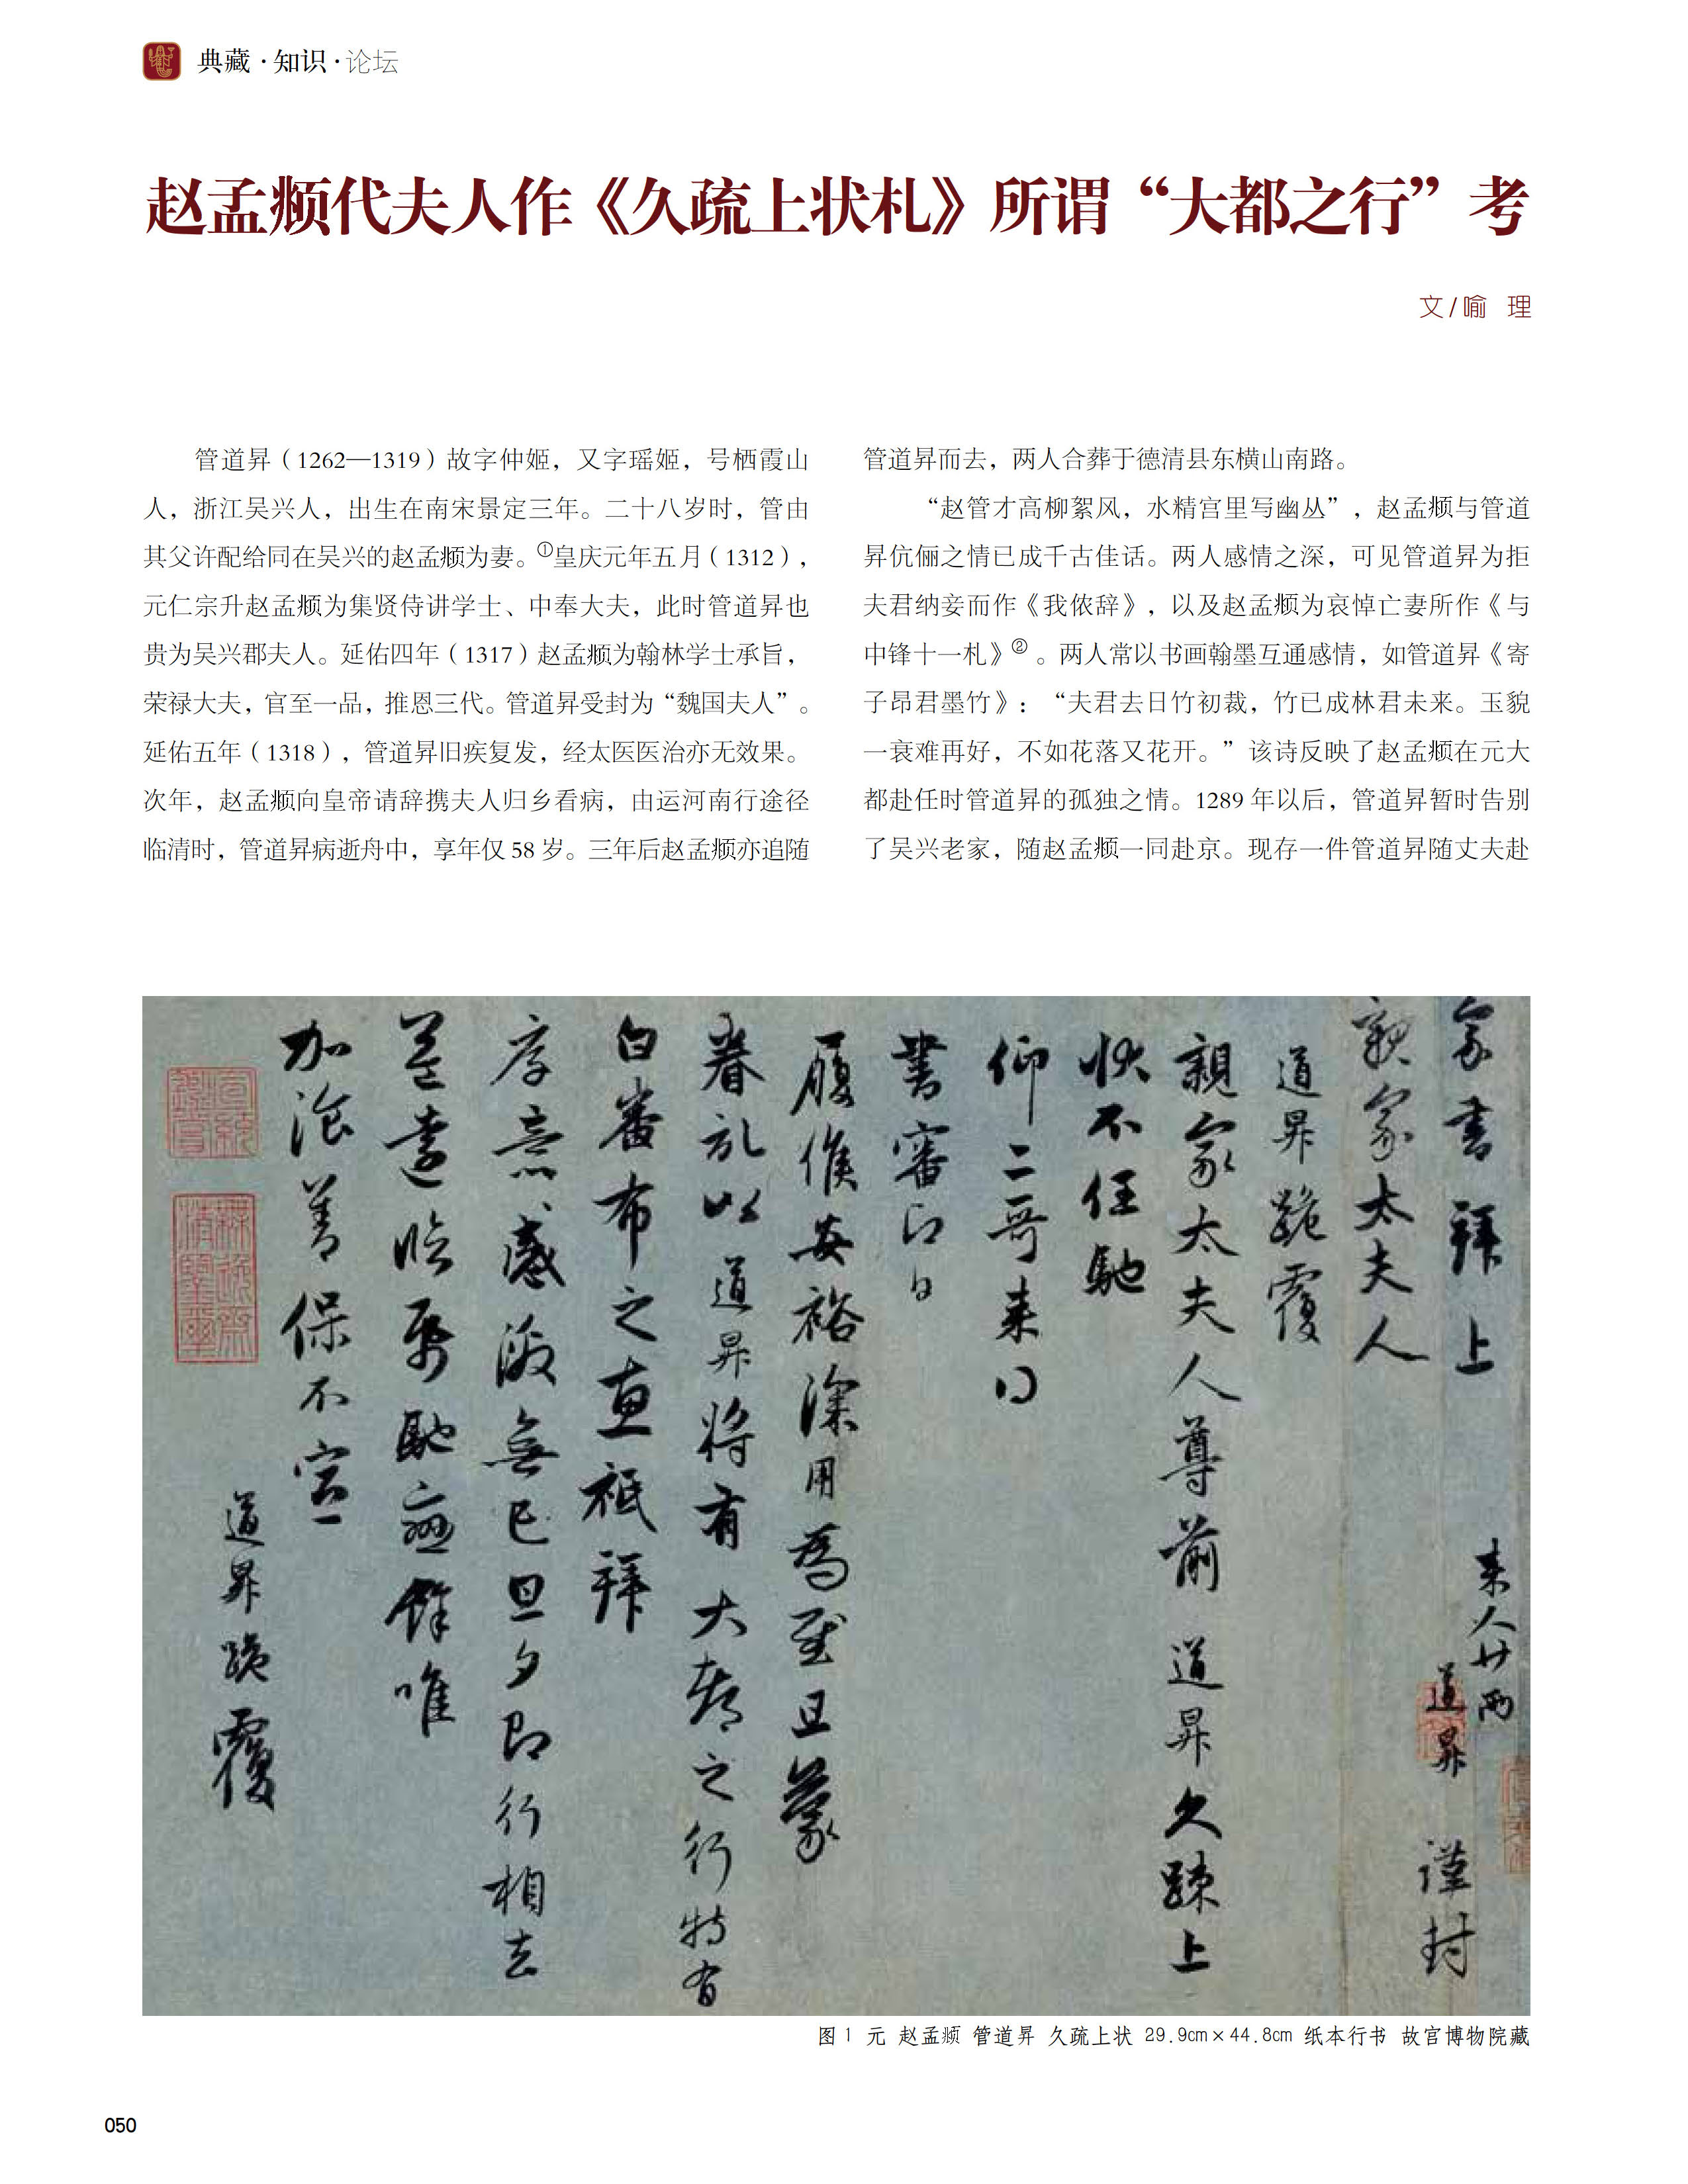 典藏·知识·论坛
赵孟頫代夫人作《久疏上状札》所谓“大都之行”考
文/喻 理
管道昇（1262—1319）故字仲姬，又字瑶姬，号栖霞山
人，浙江吴兴人，出生在南宋景定三年。二十八岁时，管由
其父许配给同在吴兴的赵孟頫为妻。①皇庆元年五月（1312），
元仁宗升赵孟頫为集贤侍讲学士、中奉大夫，此时管道昇也
贵为吴兴郡夫人。延佑四年（1317）赵孟頫为翰林学士承旨，
荣禄大夫，官至一品，推恩三代。管道昇受封为“魏国夫人”。
延佑五年（1318），管道昇旧疾复发，经太医医治亦无效果。
次年，赵孟頫向皇帝请辞携夫人归乡看病，由运河南行途径
临清时，管道昇病逝舟中，享年仅 58 岁。三年后赵孟頫亦追随
管道昇而去，两人合葬于德清县东横山南路。
“赵管才高柳絮风，水精宫里写幽丛”，赵孟頫与管道
昇伉俪之情已成千古佳话。两人感情之深，可见管道昇为拒
夫君纳妾而作《我侬辞》，以及赵孟頫为哀悼亡妻所作《与
中锋十一札》②。两人常以书画翰墨互通感情，如管道昇《寄
子昂君墨竹》：“夫君去日竹初裁，竹已成林君未来。玉貌
一衰难再好，不如花落又花开。”该诗反映了赵孟頫在元大
都赴任时管道昇的孤独之情。1289 年以后，管道昇暂时告别
了吴兴老家，随赵孟頫一同赴京。现存一件管道昇随丈夫赴
家書拜上
来人廿两
親家太夫人
道昇 謹封
道昇跪覆
親家太夫人尊前 道昇久踈上
状不任馳
仰二哥来日
書審即日
履候安裕深用為慰且蒙
眷記以道昇将有大都之行特有
白番布之惠祗拜
厚意感激無已旦夕即行相去
益遠臨紙馳戀餘唯
加飡善保不宣
道昇跪覆
图 1 元 赵孟頫 管道昇 久疏上状 29.9cm×44.8cm 纸本行书 故宫博物院藏
050